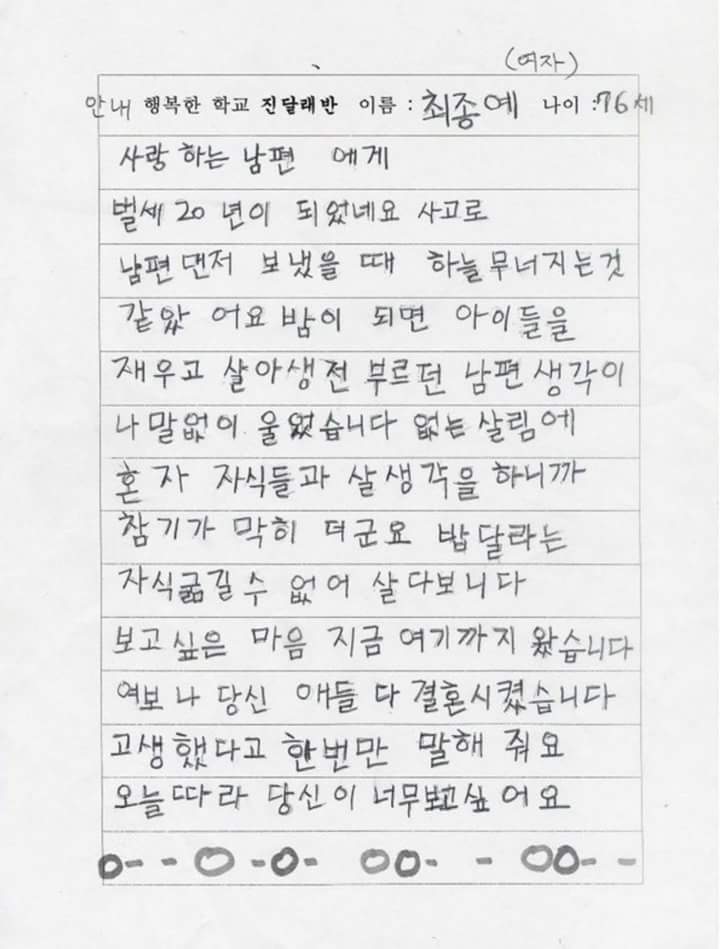 (여자)
안내 행복한 학교 진달래반 이름 : 최종예 나이 : 76세
사랑 하는 남편 에게
벌세 20 년이 되었네요 사고로
남편 먼저 보냈을 때 하늘 무너지는것
같았 어요 밤이 되면 아이들을
재우고 살아생전 부르던 남편 생각이
나 말없이 울었습니다 없는 살림에
혼자 자식들과 살생각을 하니까
참 기가 막히 더군요 밥달라는
자식굶길수 없어 살다보니다
보고싶은 마음 지금 여기까지 왔습니다
여보 나 당신 애들 다 결혼시켰습니다
고생했다고 한번만 말해 줘요
오늘따라 당신이 너무보고싶 어요